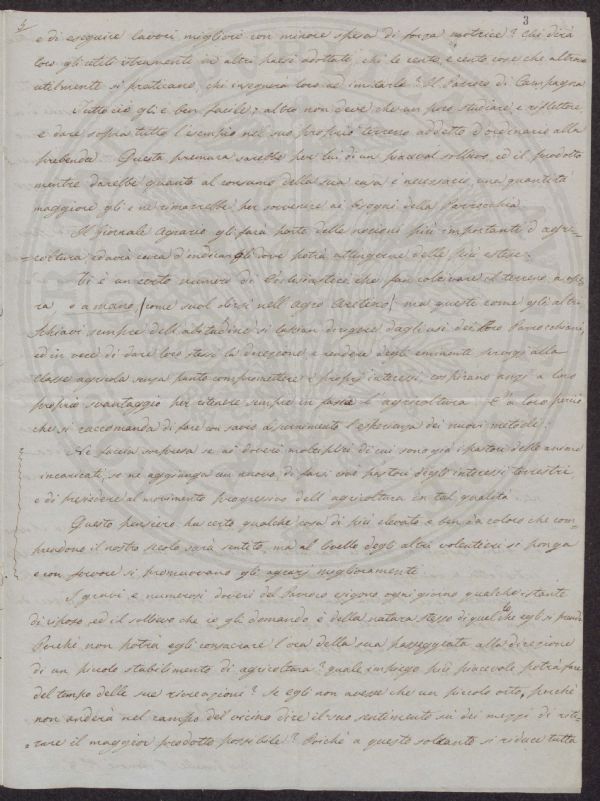 3
e di eseguire lavori migliori con minore spesa di forza motrice? Chi dirà
loro gli utili istrumenti in altri paesi adottati, chi le cento e cento cose che altrove
utilmente si praticano, chi insegnerà loro ad imitarle? Il Parroco di Campagna
Tutto ciò gli è ben facile; altro non deve che un poco studiare e riflettere
e dare sopra tutto l'esempio nel suo proprio terreno addetto d'ordinario alla
prebenda. Questa premura sarebbe per lui di un piacevol sollievo, ed il prodotto
mentre darebbe quanto al consumo della sua casa è necessario, una quantità
maggiore gli e ne rimarrebbe per sovvenire ai bisogni della Parrocchia
Il Giornale Agrario gli farà parte delle nozioni più importanti d'agri-
=coltura ed avrà cura d'indicargli dove potrà attingerne delle più estese.
Vi è un certo numero di Ecclesiastici che fan coltivare il terreno a ope-
ra o a mano, (come suol dirsi nell'Agro Aretino) ma questi come gli altri
schiavi sempre dell'abitudine si lascian dirigere dagli usi dei loro Parocchiani,
ed in vece di dare loro stessi la direzione e rendere degli eminenti servigi alla
classe agricola senza punto compromettere i propri interessi, cospirano anzi a loro
proprio svantaggio per ritenere sempre in fasce l'agricoltura. E a loro perciò
che si raccomanda di fare con savio discernimento l'esperienza dei nuovi metodi.
Nè faccia sorpresa se ai doveri molteplici di cui sono già i pastori delle anime
incaricati, se ne aggiunga un nuovo, di farsi cioè pastori degli interessi terrestri
e di presiedere al movimento progressivo dell'agricoltura in tal qualità
Questo pensiero ha certo qualche cosa di più elevato e ben da coloro che com-
prendono il nostro secolo sarà sentito, ma al livello degli altri volentieri si ponga
e con fervore si promuovano gli agrari miglioramenti
I gravi e numerosi doveri del Parroco esigono ogni giorno qualche istante
di riposo, ed il sollievo che io gli domando è della natura stessa di quel che egli si prende
Perchè non potrà egli consacrare l'ora della sua passeggiata alla direzione
di un piccolo stabilimento di agricoltura? quale impiego più piacevole potrà fare
del tempo delle sue ricreazioni? Se egli non avesse che un piccolo orto, perchè
non anderà nel campo del vicino dire il suo sentimento sui dei mezzi di riti-
=rare il maggior prodotto possibile? Poichè a questo soltanto si riduce tutta